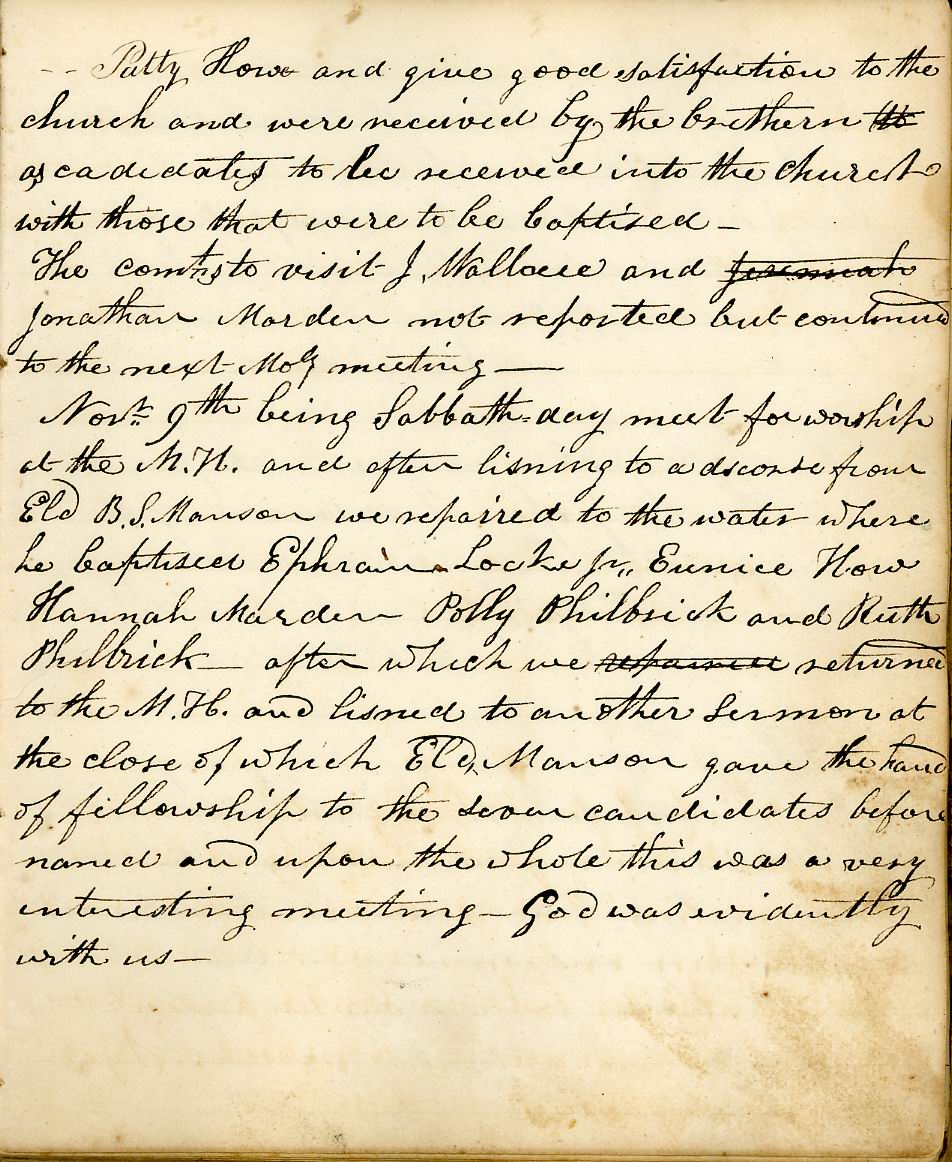 -- Patty Howe and give good satisfaction to the
church and were received by the brethern to
as cadedates to be received into the church
with those that were to be baptised —
The comtys to visit J. Wallace and Jeremiah
Jonathan Marden not reported but continued
to the next Moy meeting —
Novr 9th being Sabbath-day meet for worship
at the M.H. and after lisning to a dscorse from
Eld B.S. Manson we repaired to the water where
he baptised Ephraim Locke Jr., Eunice How
Hannah Marden Polly Philbrick and Ruth
Philbrick — after which we repaired returned
to the M.H. and lisned to another Sermon at
the close of which Eld, Manson gave the hand
of fellowship to the seven candidates before
named and upon the whole this was a very
interesting meeting — God was evidently
with us —